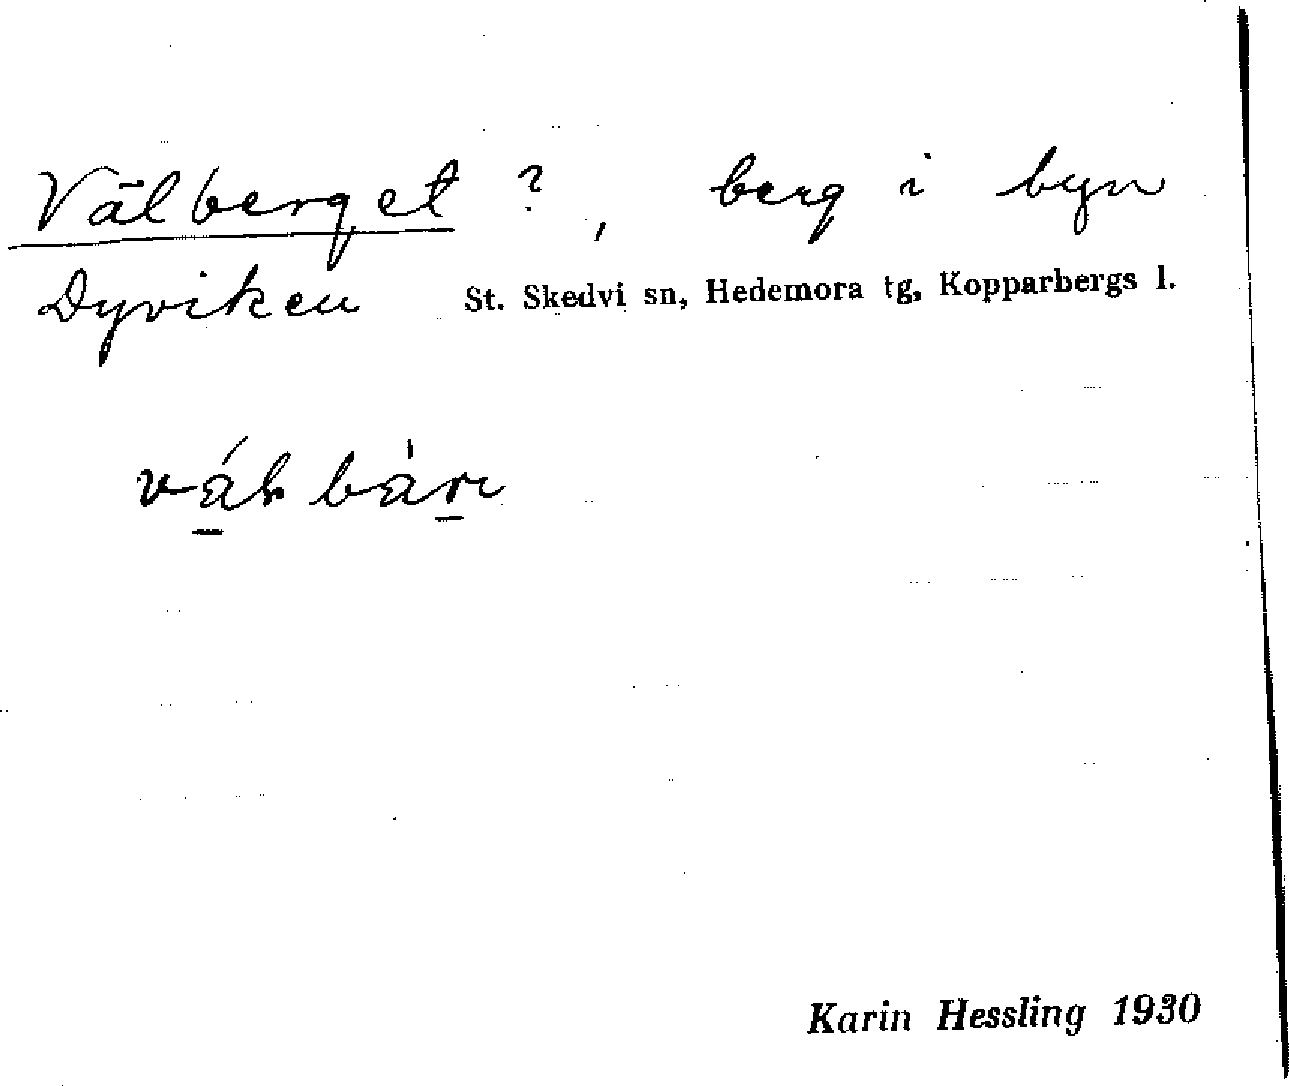 Välberget ?, berg i byn
Dyviken St. Skedvi sn, Hedemora tg, Kopparbergs l.
Karin Hessling 1930